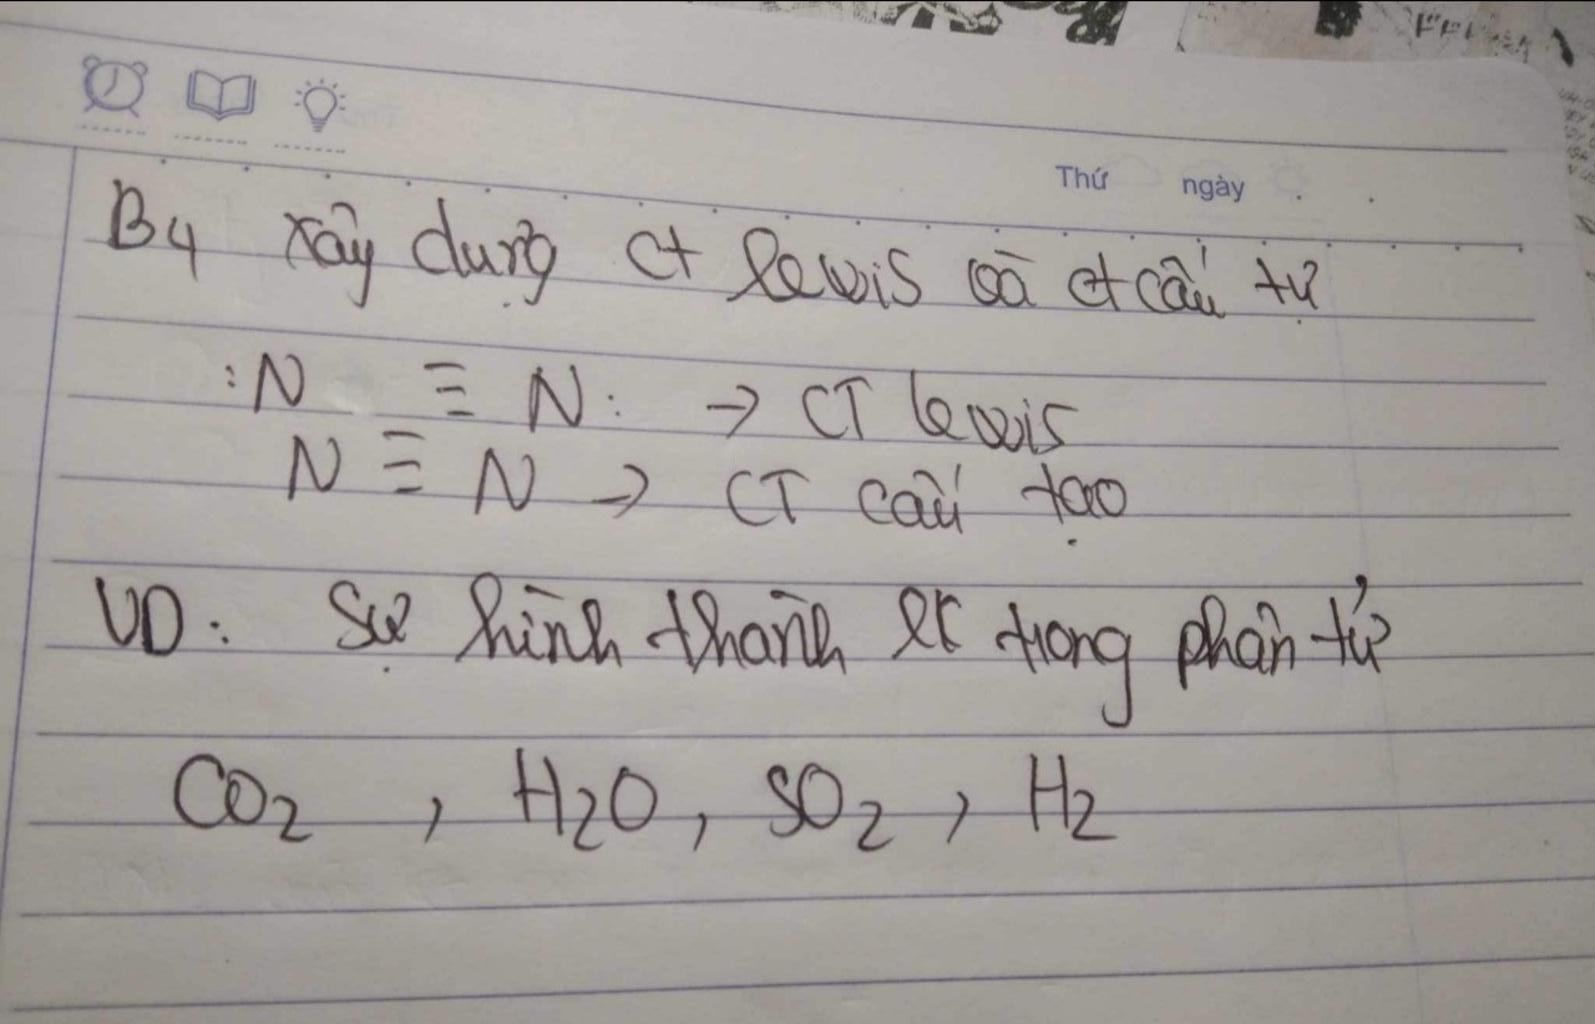 Thứ ngày
B4 xây dựng ct lewis và ct cấu tự
:N ≡ N: → CT lewis
N ≡ N → CT cấu tạo
VD: Sự hình thành lk trong phân tử
CO2 , H2O, SO2, H2